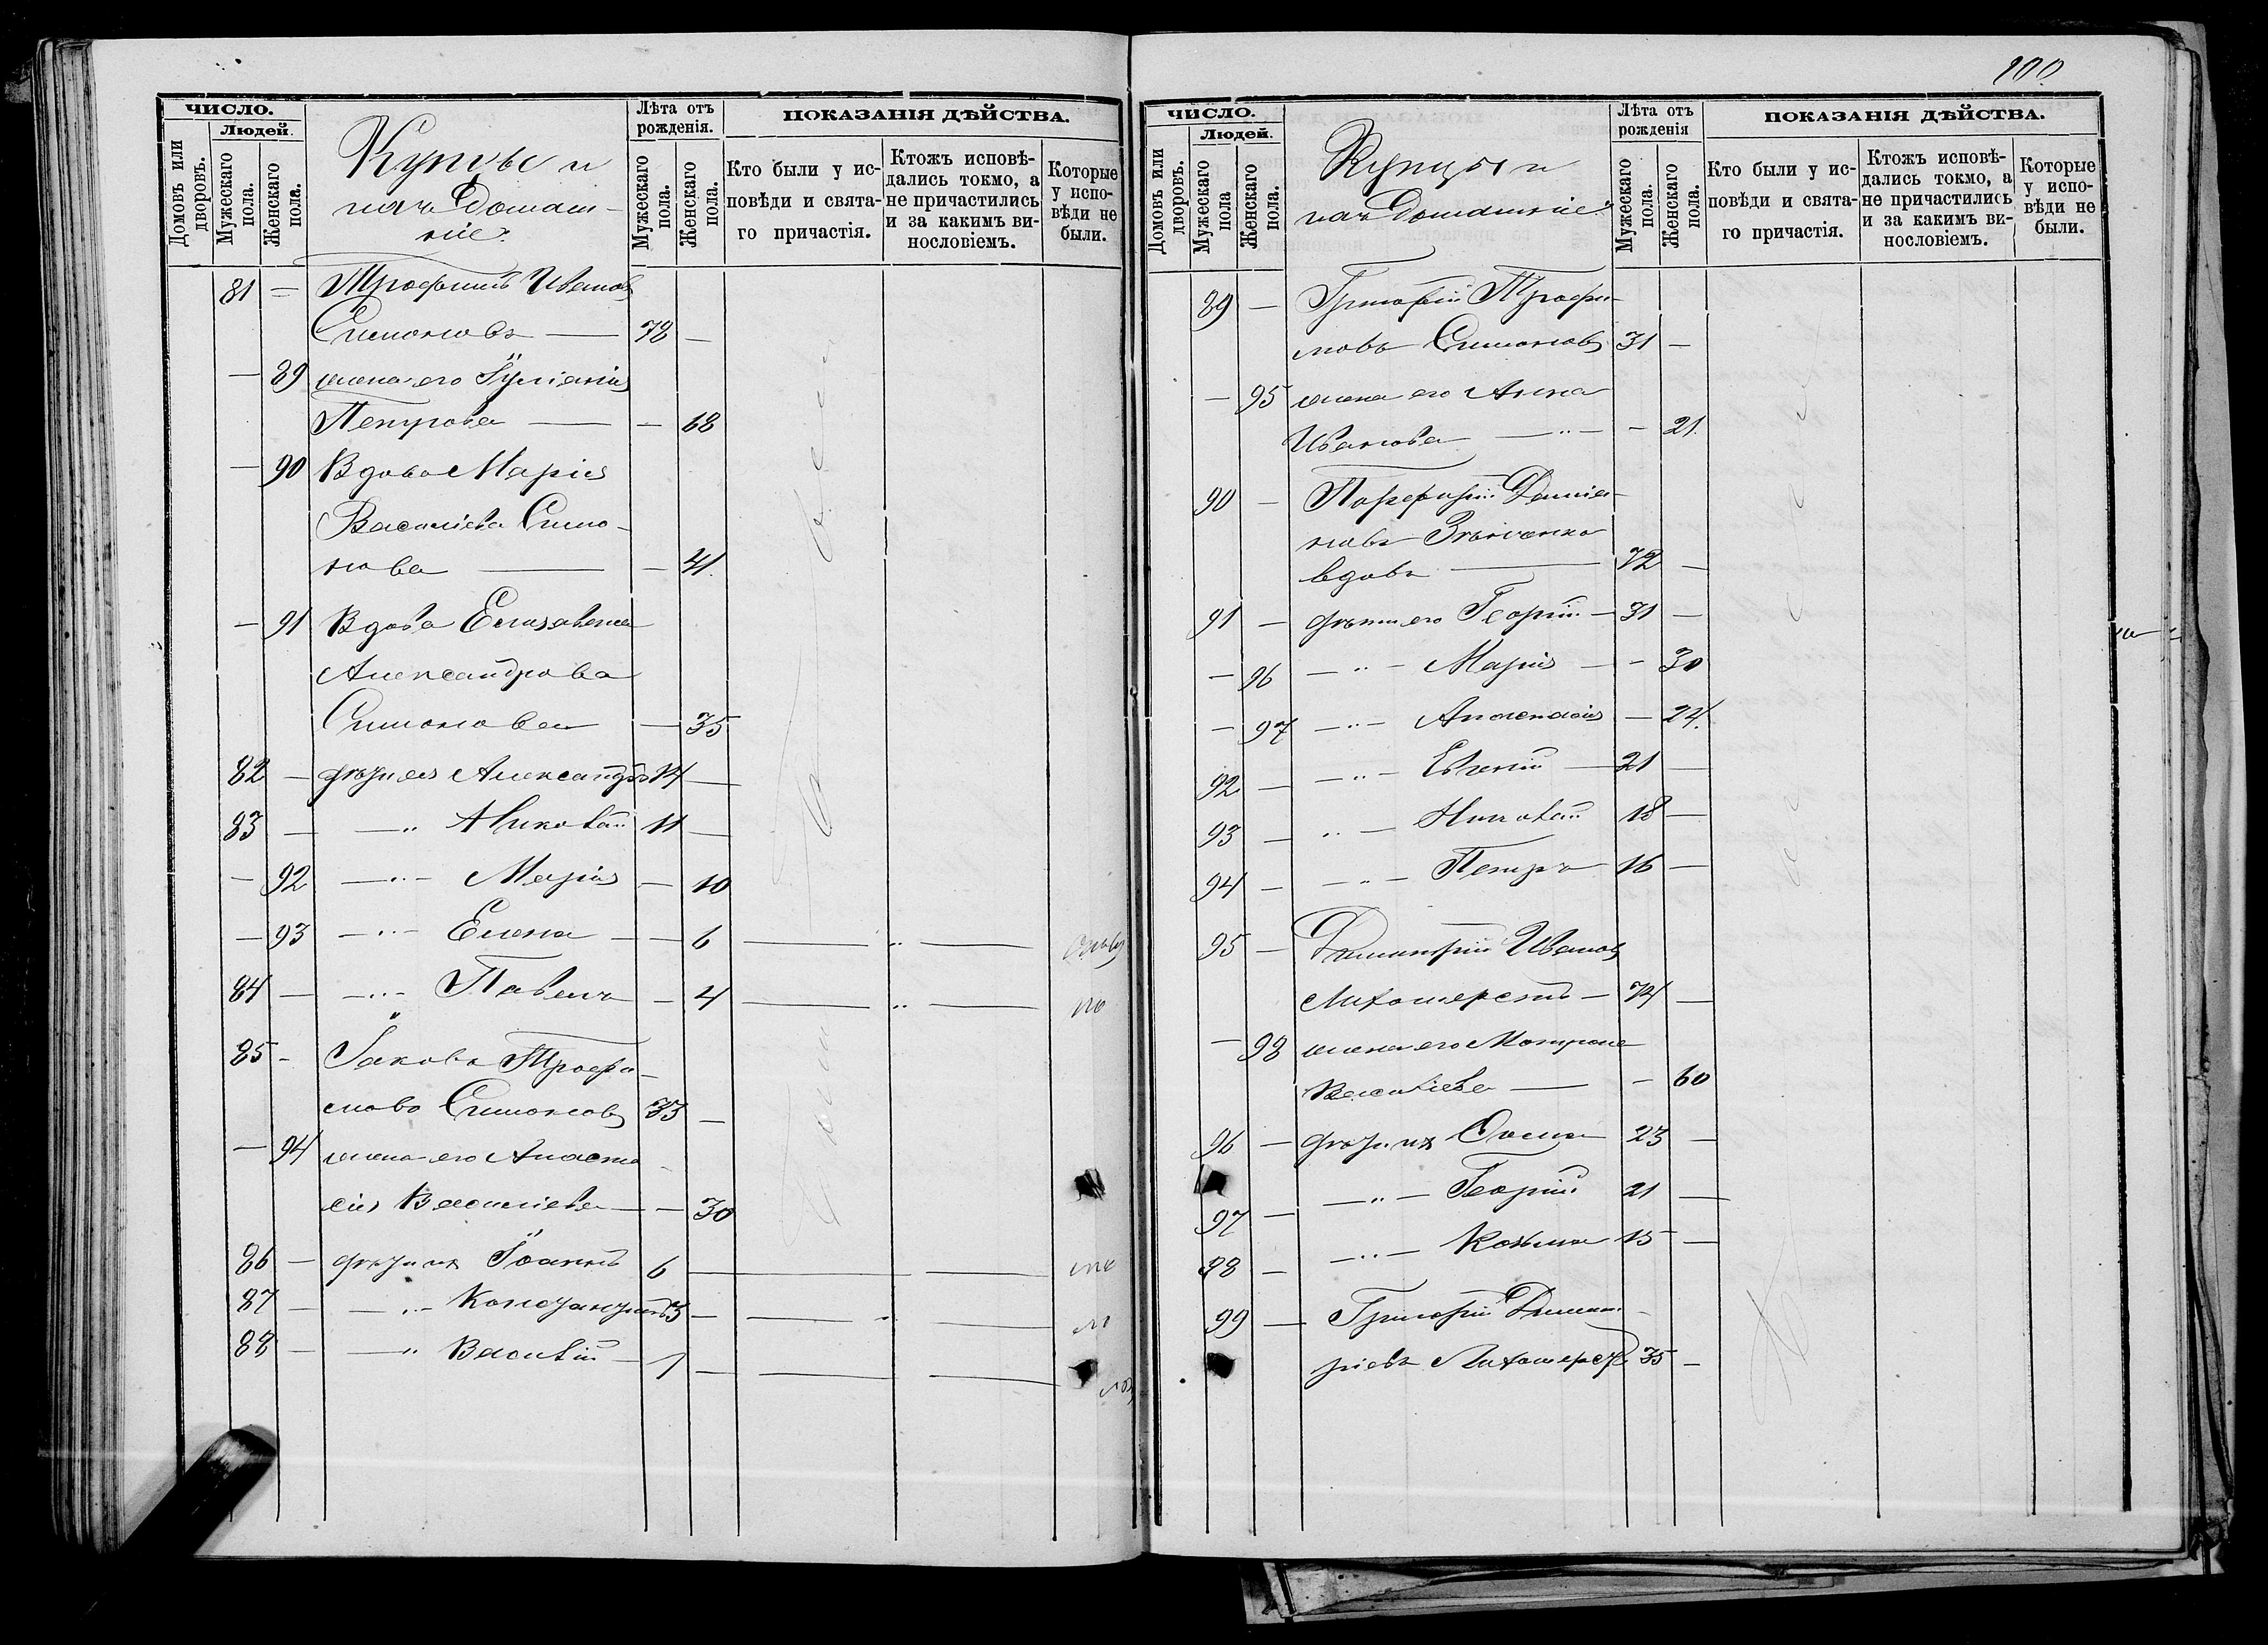 100
ЧИСЛО.
Домовъ или дворовъ.
Людей.
Мужескаго пола.
Женскаго пола.
Купцы и
ихъ Домаш-
ніе.
Лѣта отъ рожденія.
Мужескаго пола.
Женскаго пола.
ПОКАЗАНІЯ ДѢЙСТВА.
Кто были у ис-
повѣди и свята-
го причастія.
Ктожъ исповѣ-
дались токмо, а
не причастились
и за какимъ ви-
нословіемъ.
Которые
у испо-
вѣди не
были.
81 — Трофимъ Ивановъ
Симоновъ — 78 —
— 89 жена его Іуліанія
Петрова — — 68
— 90 Вдова Марія
Васильева Симо-
нова — — 41.
— 91 Вдова Елизавета
Александрова
Симонова — 35
82 — дѣти ея Александръ 14 —
83 — — " Николай 11 —
— 92 — " — Марія — 10
— 93 — " — Елена — — 6 — " —
84 — — " — Павелъ — 4 — " — то
85 — Іаковъ Трофи-
мовъ Симоновъ 33 —
— 94 жена его Анаста-
сія Васильева — — 30
86 — дѣти ихъ Іоаннъ 6 — —
87 — — " — Константинъ 3 — — " —
88 — — " Василій — 1 — — —
ЧИСЛО.
Домовъ или дворовъ.
Людей.
Мужескаго пола
Женскаго пола.
Купцы и
ихъ Домашніе.
Лѣта отъ рожденія
Мужескаго пола.
Женскаго пола.
ПОКАЗАНІЯ ДѢЙСТВА.
Кто были у ис-
повѣди и свята-
го причастія.
Ктожъ исповѣ-
дались токмо, а
не причастились
и за какимъ ви-
нословіемъ.
Которые
у испо-
вѣди не
были.
89 — Григорій Трофи-
мовъ Симоновъ 31 —
— 95 жена его Анна
Иванова — " — — 21.
90 — Порфирій Даміа-
новъ
вдовъ — 72 —
91 — дѣти его Георгій — 31 —
— 96 — " — Марія — — 30
— 97 — " — Анастасія — 24.
92 — — " — Евгеній — 21 —
93 — " — Николай 18 —
94 — — " — Петръ 16 —
95 — Димитрій Ивановъ
Лихошерстъ — 74 —
— 98 жена его Матрона
Васильева — — 60
96 — дѣти ихъ Сосма 23 —
97 — — " — Георгій 21 —
98 — — " — Козьма 15 —
99 — Григорій Димит-
ріевъ Лихошерстъ 35 —